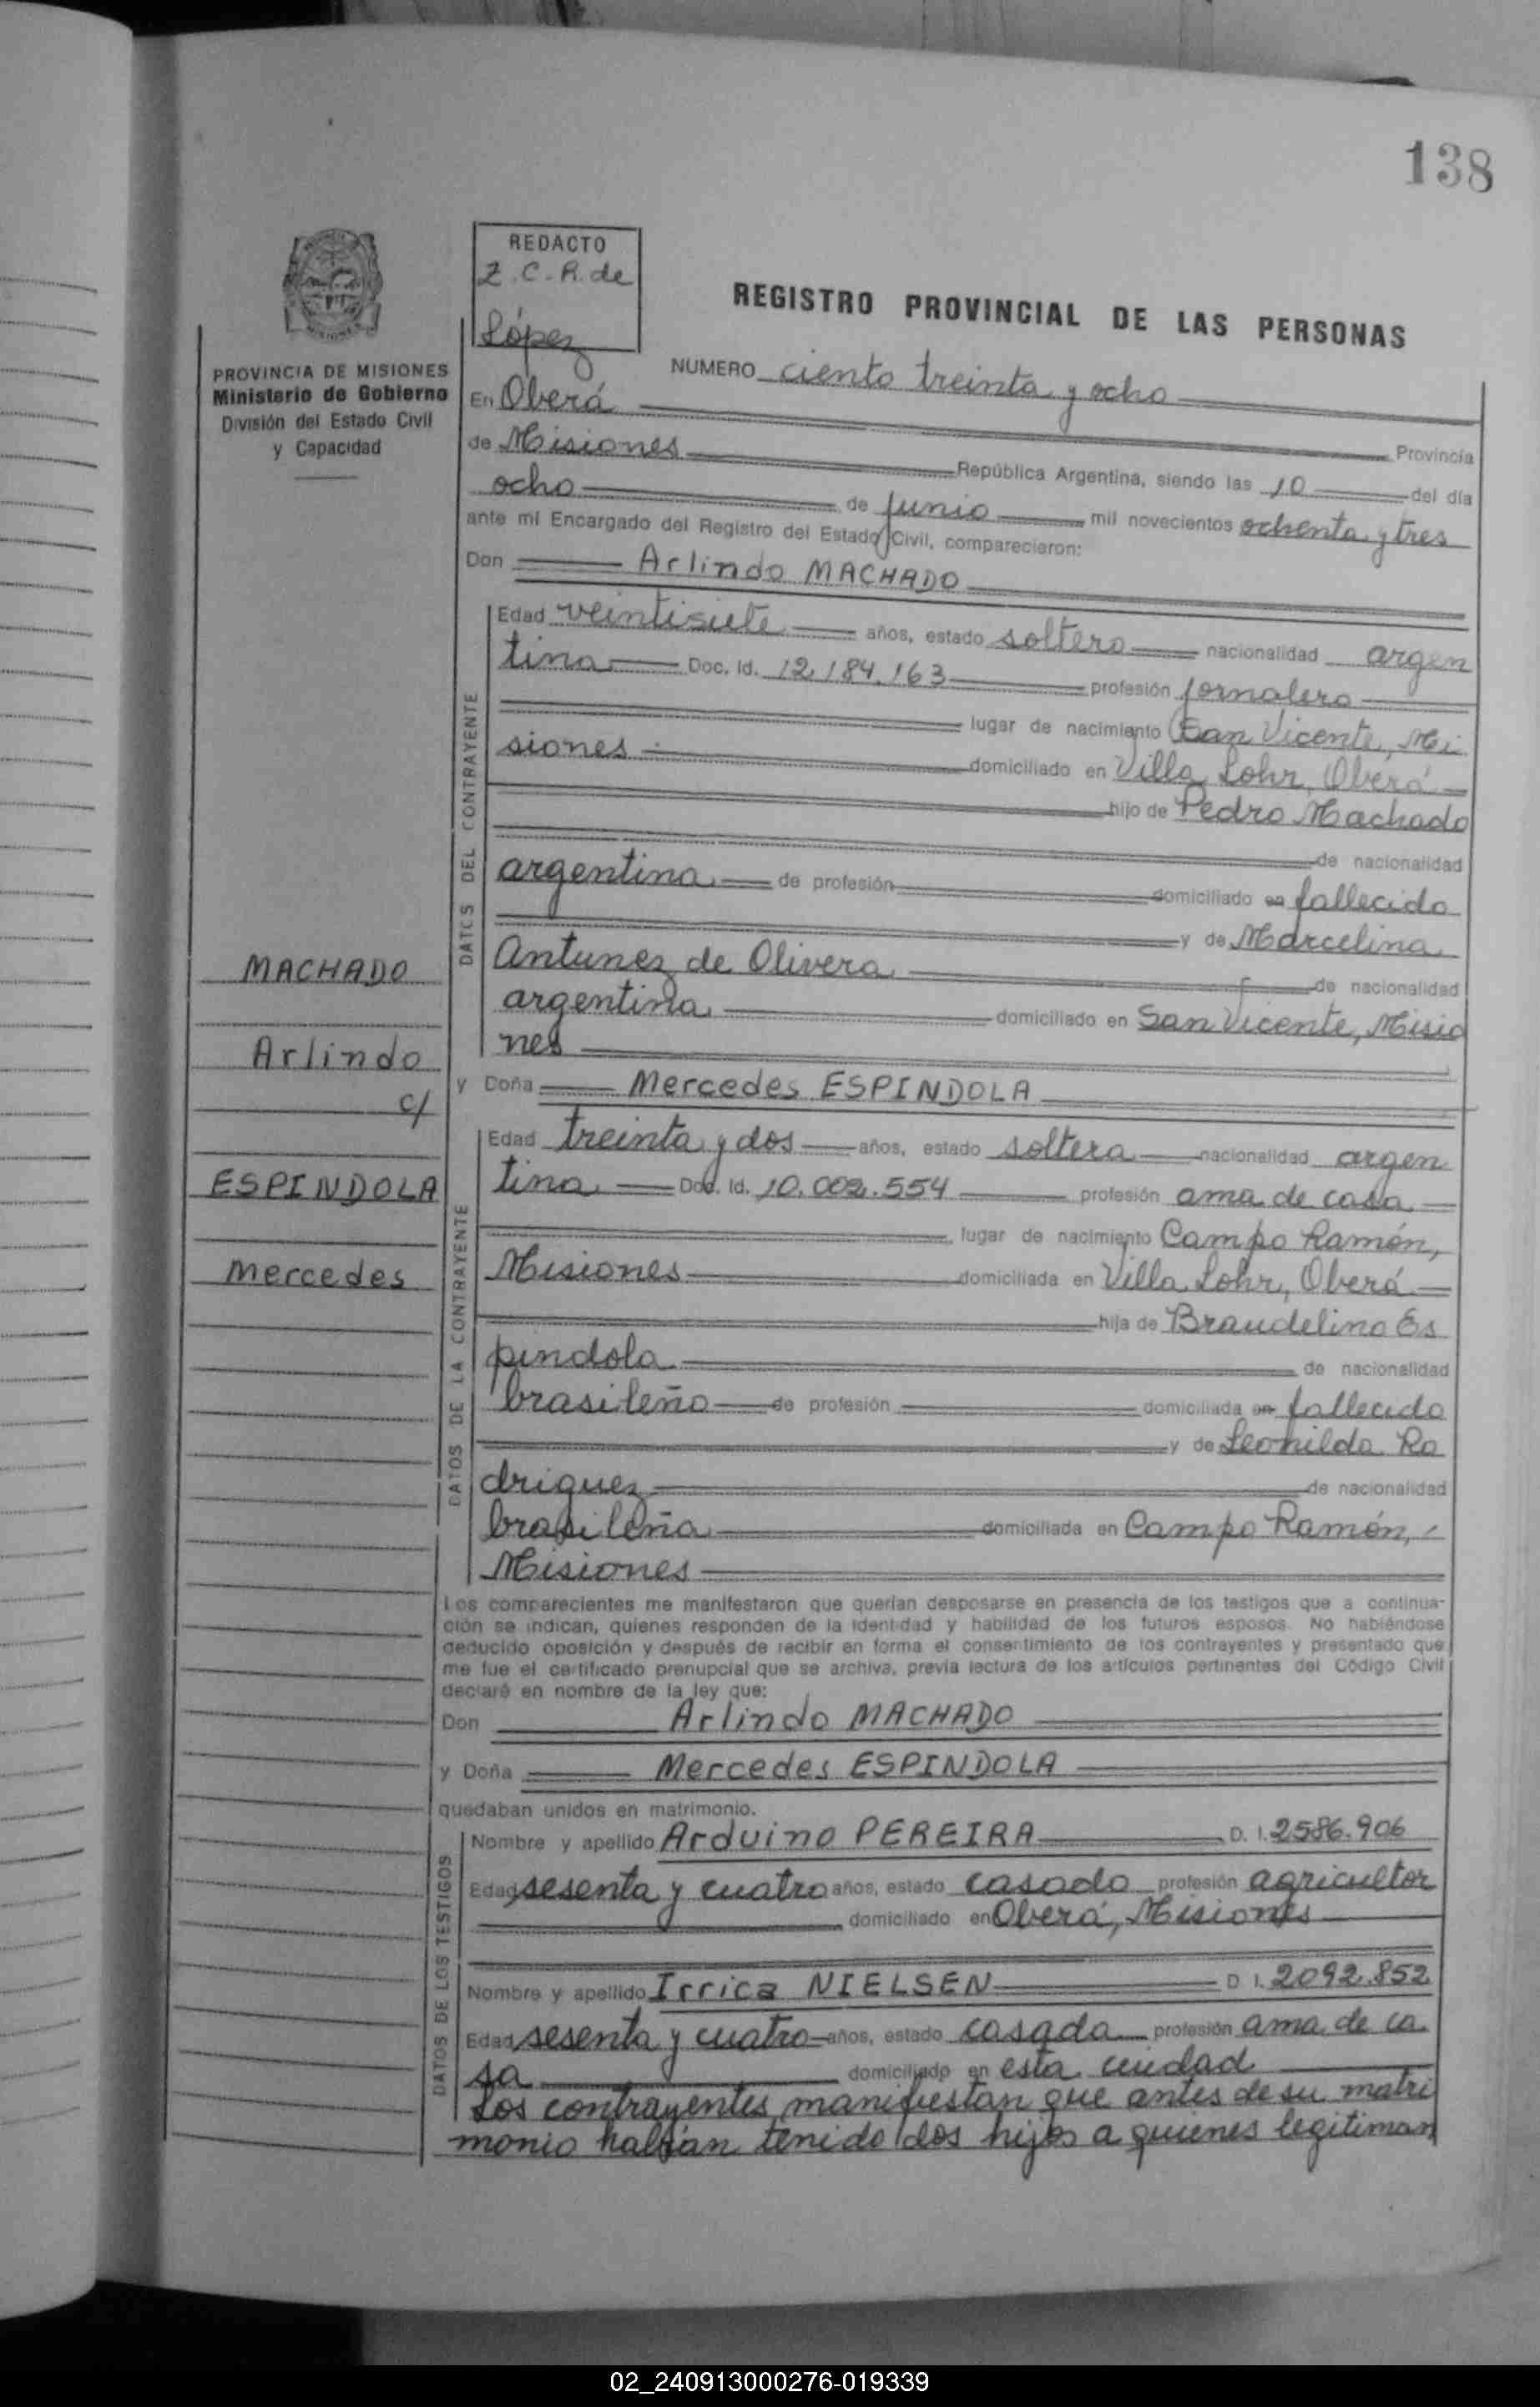 138
REDACTO
Z. C. R. de
López
REGISTRO PROVINCIAL DE LAS PERSONAS
PROVINCIA DE MISIONES
Ministerio de Gobierno
División del Estado Civil
y Capacidad
NUMERO ciento treinta y ocho
En Oberá Provincia
de Misiones República Argentina, siendo las 10 del día
ocho de Junio mil novecientos ochenta y tres
ante mi Encargado del Registro del Estado Civil, comparecieron:
Don Arlindo MACHADO
DATOS DEL CONTRAYENTE
Edad veintisiete años, estado soltero nacionalidad argen
tina Doc. Id. 12.184.163 profesión jornalero
lugar de nacimiento San Vicente, Mi
siones domiciliado en Villa Lohr, Oberá
hijo de Pedro Machado
de nacionalidad
argentina de profesión domiciliado en fallecido
y de Marcelina
Antunez de Olivera de nacionalidad
argentina domiciliado en San Vicente, Misio
nes
MACHADO
Arlindo
c/
ESPINDOLA
Mercedes
y Doña Mercedes ESPINDOLA
DATOS DE LA CONTRAYENTE
Edad treinta y dos años, estado soltera nacionalidad argen
tina Doc. Id. 10.002.554 profesión ama de casa
lugar de nacimiento Campo Ramón,
Misiones domiciliada en Villa Lohr, Oberá
hija de Braudelino Es
pindola de nacionalidad
brasileño de profesión domiciliada en fallecido
y de Leonilda Ro
driguez de nacionalidad
brasileña domiciliada en Campo Ramón,
Misiones
Los comparecientes me manifestaron que querían desposarse en presencia de los testigos que a continua-
ción se indican, quienes responden de la identidad y habilidad de los futuros esposos. No habiéndose
deducido oposición y después de recibir en forma el consentimiento de los contrayentes y presentado que
me fue el certificado prenupcial que se archiva, previa lectura de los artículos pertinentes del Código Civil
declaré en nombre de la ley que:
Don Arlindo MACHADO
y Doña Mercedes ESPINDOLA
quedaban unidos en matrimonio.
DATOS DE LOS TESTIGOS
Nombre y apellido Arduino PEREIRA D. I. 2586.906
Edad sesenta y cuatro años, estado casado profesión agricultor
domiciliado en Oberá, Misiones
Nombre y apellido Irrica NIELSEN D I. 2092.852
Edad sesenta y cuatro años, estado casada profesión ama de ca
sa domiciliado en esta ciudad
Los contrayentes manifiestan que antes de su matri
monio habían tenido dos hijos a quienes legitiman
02_240913000276-019339